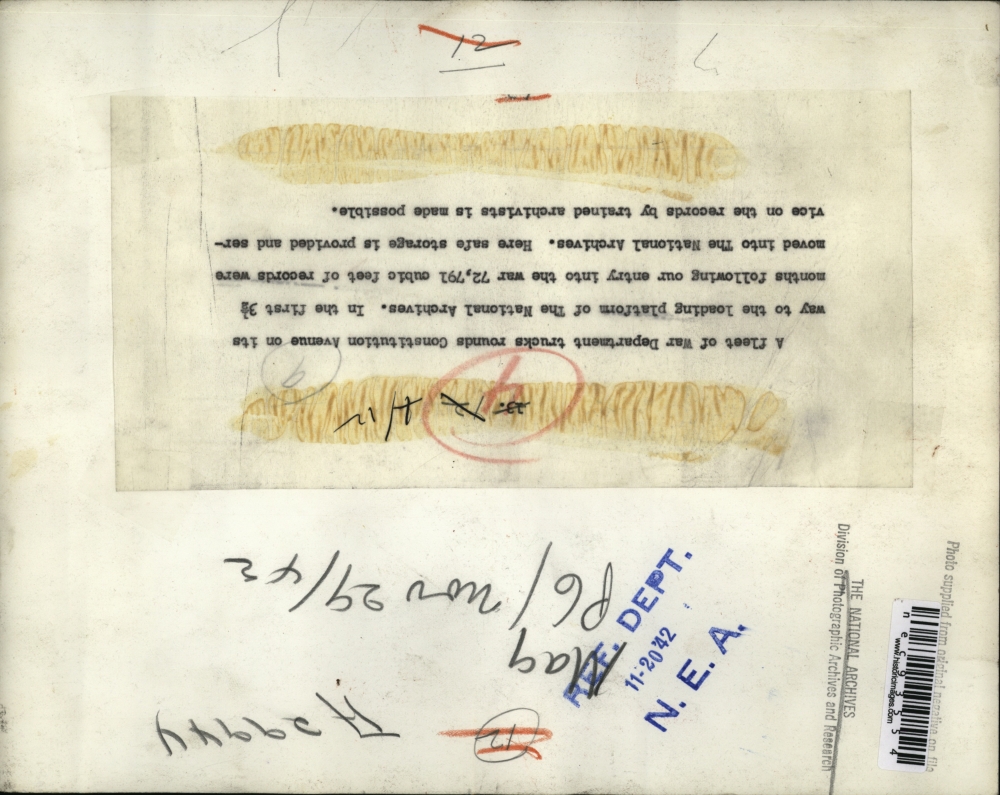 A fleet of War Department trucks rounds Constitution Avenue on its
way to the loading platform of The National Archives. In the first 3½
months following our entry into the war 72,791 cubic feet of records were
moved into The National Archives. Here safe storage is provided and ser-
vice on the records by trained archivists is made possible.
12
9
4
Mag
P6/Nov 29/42
12
REF. DEPT.
11-20'42
N. E. A.
THE NATIONAL ARCHIVES
Division of Photographic Archives and Research
Photo supplied from original negative on file
www.historicimages.com